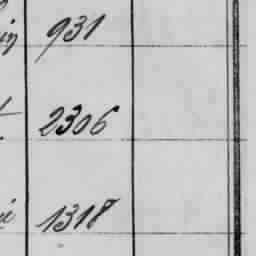 931
2306
1318